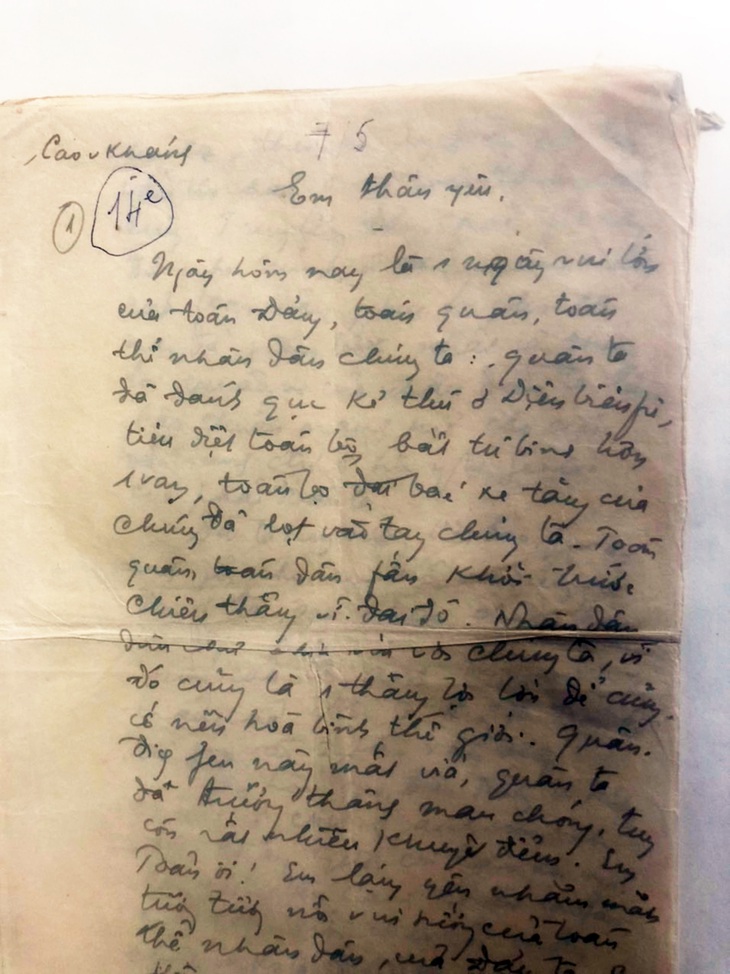 Cao Kháng
7 5
Em thân yêu,
1
14e
Ngày hôm nay là 1 ngày vui lớn
của toàn Đảng, toàn quân, toàn
thể nhân dân chúng ta: quân ta
đã đánh quỵ kẻ thù ở Điện biên phủ,
tiêu diệt toàn bộ, bắt tù binh hơn
1 vạn, toàn bộ đại bác xe tăng của
chúng đã lọt vào tay chúng ta. Toàn
quân, toàn dân phấn khởi trước
chiến thắng vĩ đại đó. Nhân dân
chúng ta, vì
đó cũng là 1 thắng lợi lớn để củng
cố nền hoà bình thế giới. Quân
địch lần này mất vía, quân ta
đã trưởng thành mau chóng, tuy
còn rất nhiều khuyết điểm. Em
Toàn ơi! Em lặng yên nhắm mắt
tưởng tượng nỗi vui mừng của toàn
thể nhân dân, của Đảng ta